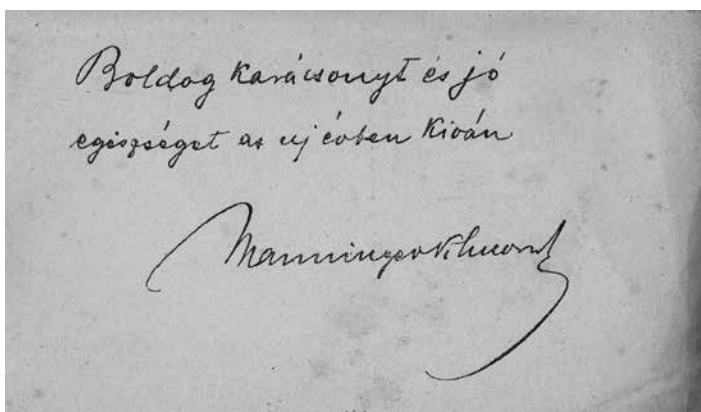 Boldog karácsonyt és jó
egészséget az uj évben kiván
Manninger Vilmos